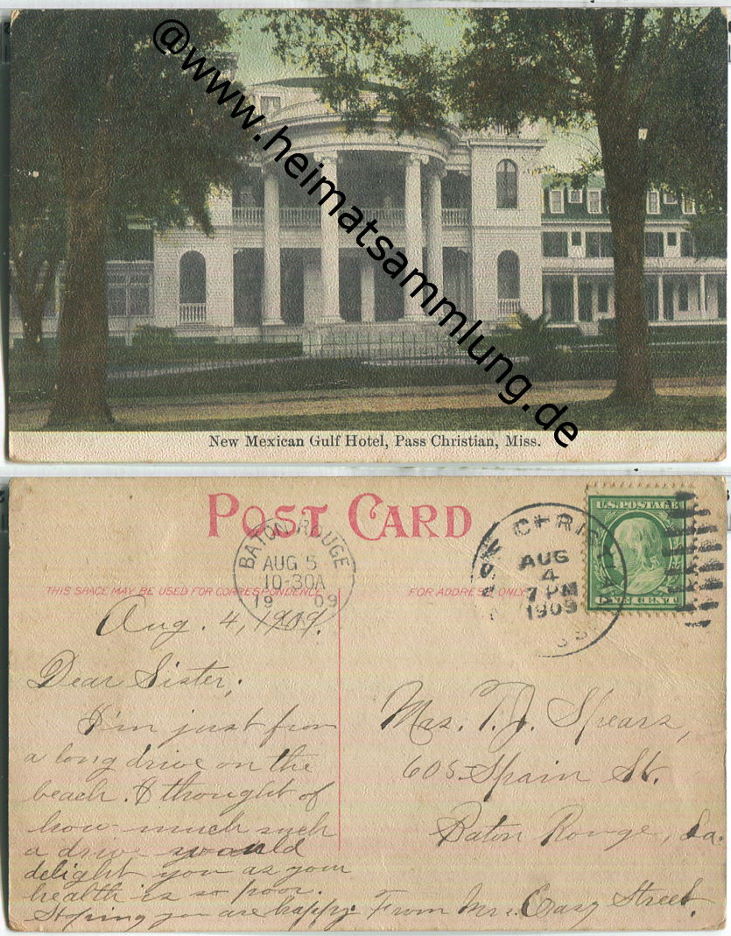 @www.heimatsammlung.de
New Mexican Gulf Hotel, Pass Christian, Miss.
POST CARD
BATON ROUGE
AUG 5
10-30A
1909
CHRISTIAN
AUG
4
7 PM
1909
U.S. POSTAGE
THIS SPACE MAY BE USED FOR CORRESPONDENCE
FOR ADDRESS ONLY
Aug. 4, 1909.
Dear Sister;
I'm just from
a long drive on the
beach. I thought of
how much such
a drive would
delight you as your
health is so poor.
Hoping you are happy. From Mrs. Street.
Mrs. T. J. Spears,
605 Spain St.
Baton Rouge, La.